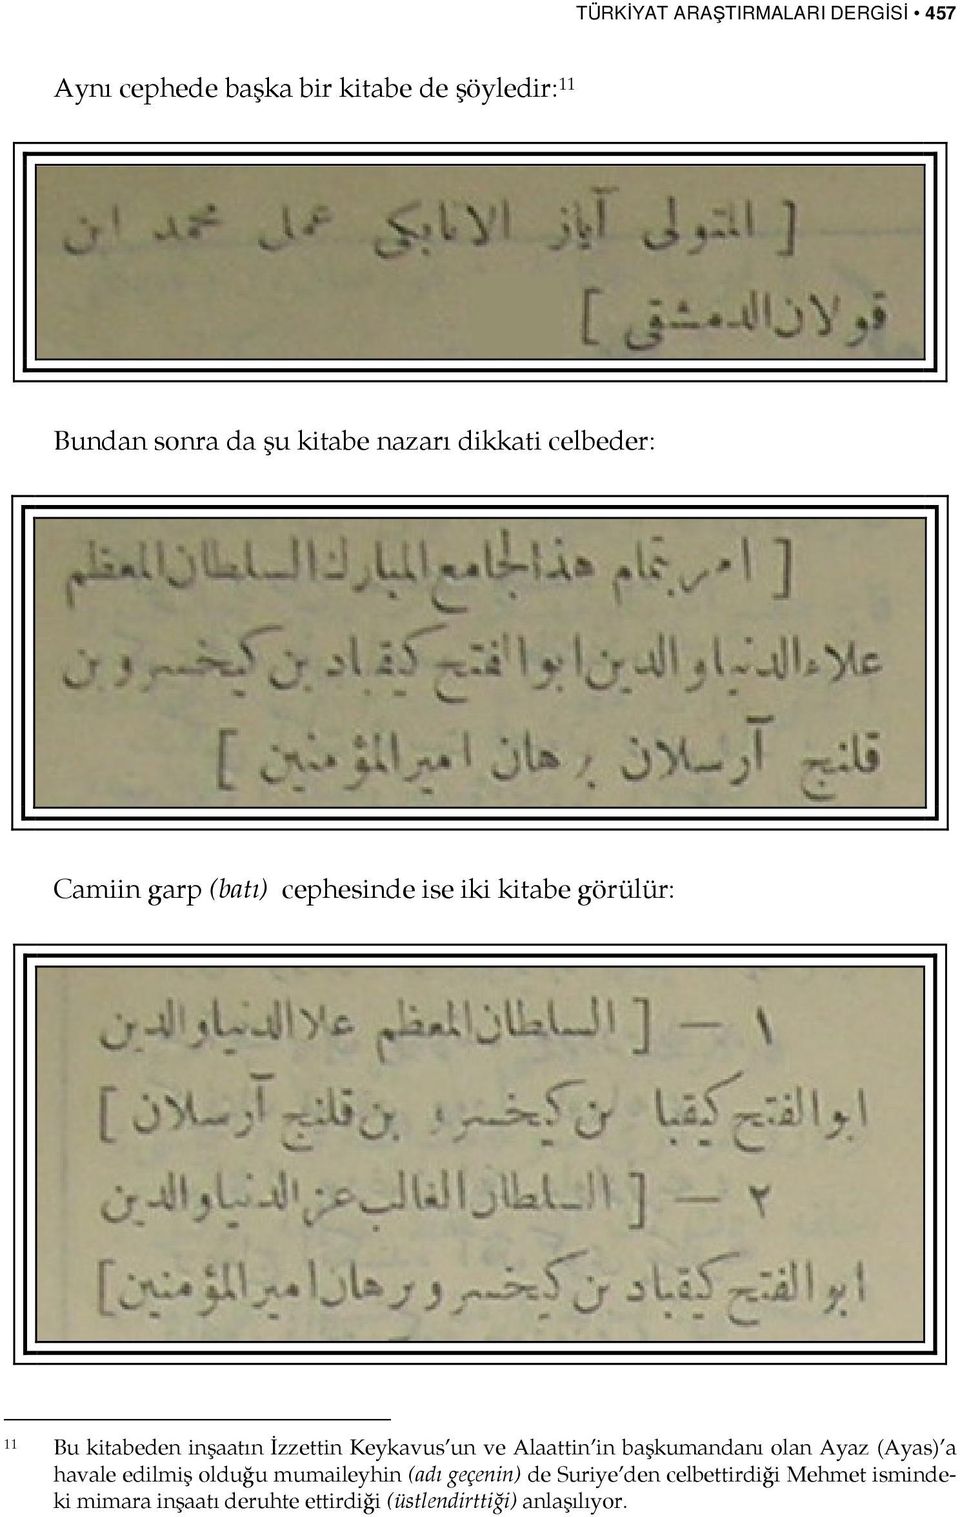 TÜRKİYAT ARAŞTIRMALARI DERGİSİ • 457
Aynı cephede başka bir kitabe de şöyledir:¹¹
[ المتولى آياز الاتابكى عمل محمد ابن
قولان الدمشقى ]
Bundan sonra da şu kitabe nazarı dikkati celbeder:
[ امر بتمام هذا الجامع المبارك السلطان المعظم
علاء الدنيا والدين ابوالفتح كيقباد بن كيخسرو بن
قلنج آرسلان برهان اميرالمؤمنين ]
Camiin garp (batı) cephesinde ise iki kitabe görülür:
١ — [ السلطان المعظم علا الدنيا والدين
ابوالفتح كيقبا بن كيخسرو بن قلنج آرسلان ]
٢ — [ السلطان الغالب عز الدنيا والدين
ابوالفتح كيقباد بن كيخسرو برهان اميرالمؤمنين ]
¹¹ Bu kitabeden inşaatın İzzettin Keykavus'un ve Alaattin'in başkumandanı olan Ayaz (Ayas)'a
havale edilmiş olduğu mumaileyhin (adı geçenin) de Suriye'den celbettirdiği Mehmet isminde-
ki mimara inşaatı deruhte ettirdiği (üstlendirttiği) anlaşılıyor.